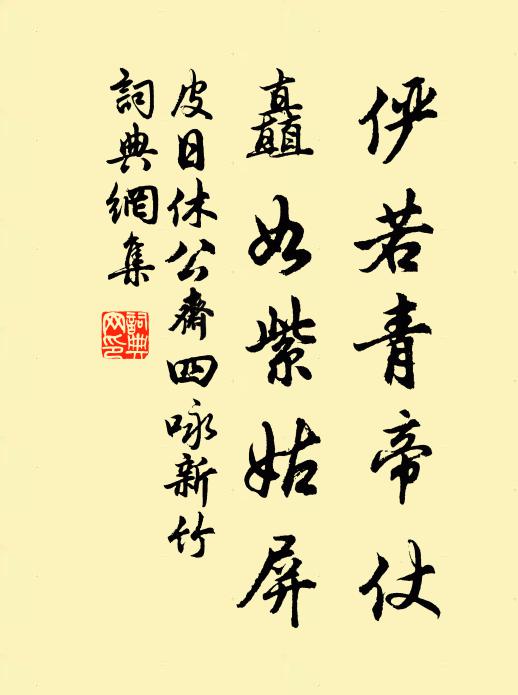 俨若青帝仗
矗如紫姑屏
皮日休公齋四咏新竹
詞典網集
詞典網印